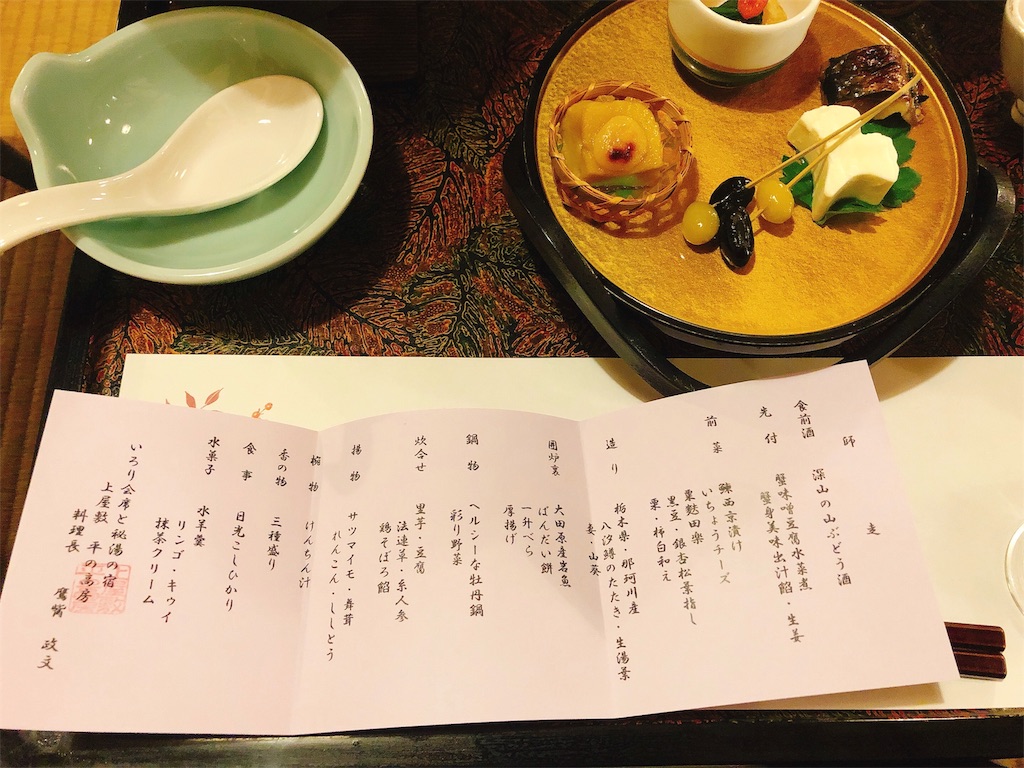 師走
食前酒 深山の山ぶどう酒
先付 蟹味噌豆腐水菜煮
蟹身美味出汁餡・生姜
前菜 鰊西京漬け
いちょうチーズ
粟麩田楽
黒豆・銀杏松葉指し
栗・柿白和え
造り 栃木県・那珂川産
八汐鱒のたたき・生湯葉
妻・山葵
囲炉裏 大田原産岩魚
ばんだい餅
一升べら
厚揚げ
鍋物 ヘルシーな牡丹鍋
彩り野菜
炊合せ 里芋・豆腐
法連草・糸人参
鶏そぼろ餡
揚物 サツマイモ・舞茸
れんこん・ししとう
椀物 けんちん汁
香の物 三種盛り
食事 日光こしひかり
水菓子 水羊羹
リンゴ・キゥイ
抹茶クリーム
いろり会席と秘湯の宿
上屋敷 平の高房
料理長 鷹觜 政文